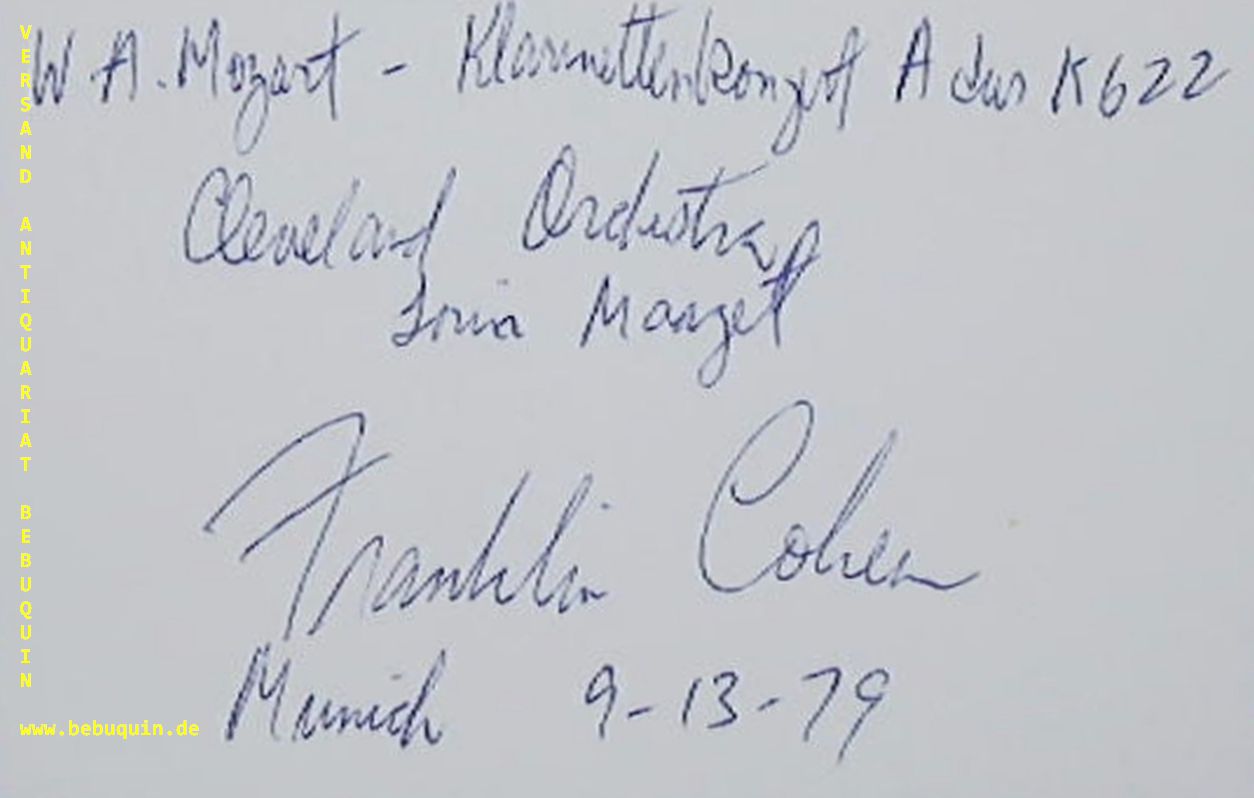 W A. Mozart - Klarinettenkonzert A dur K 622
Cleveland Orchestra
Lorin Maazel
Franklin Cohen
Munich 9-13-79
VERSAND ANTIQUARIAT BEBUQUIN
www.bebuquin.de